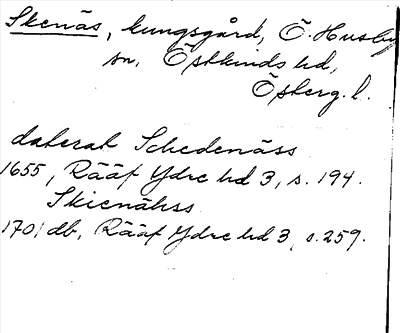 Skenäs, kungsgård, Ö. Husby
sn, Östkinds hd,
Östergl.
daterat Schedenäss
1655, Rääf Ydre hd 3, s. 194.
Skienähss
1701 db, Rääf Ydre hd 3, s. 259.